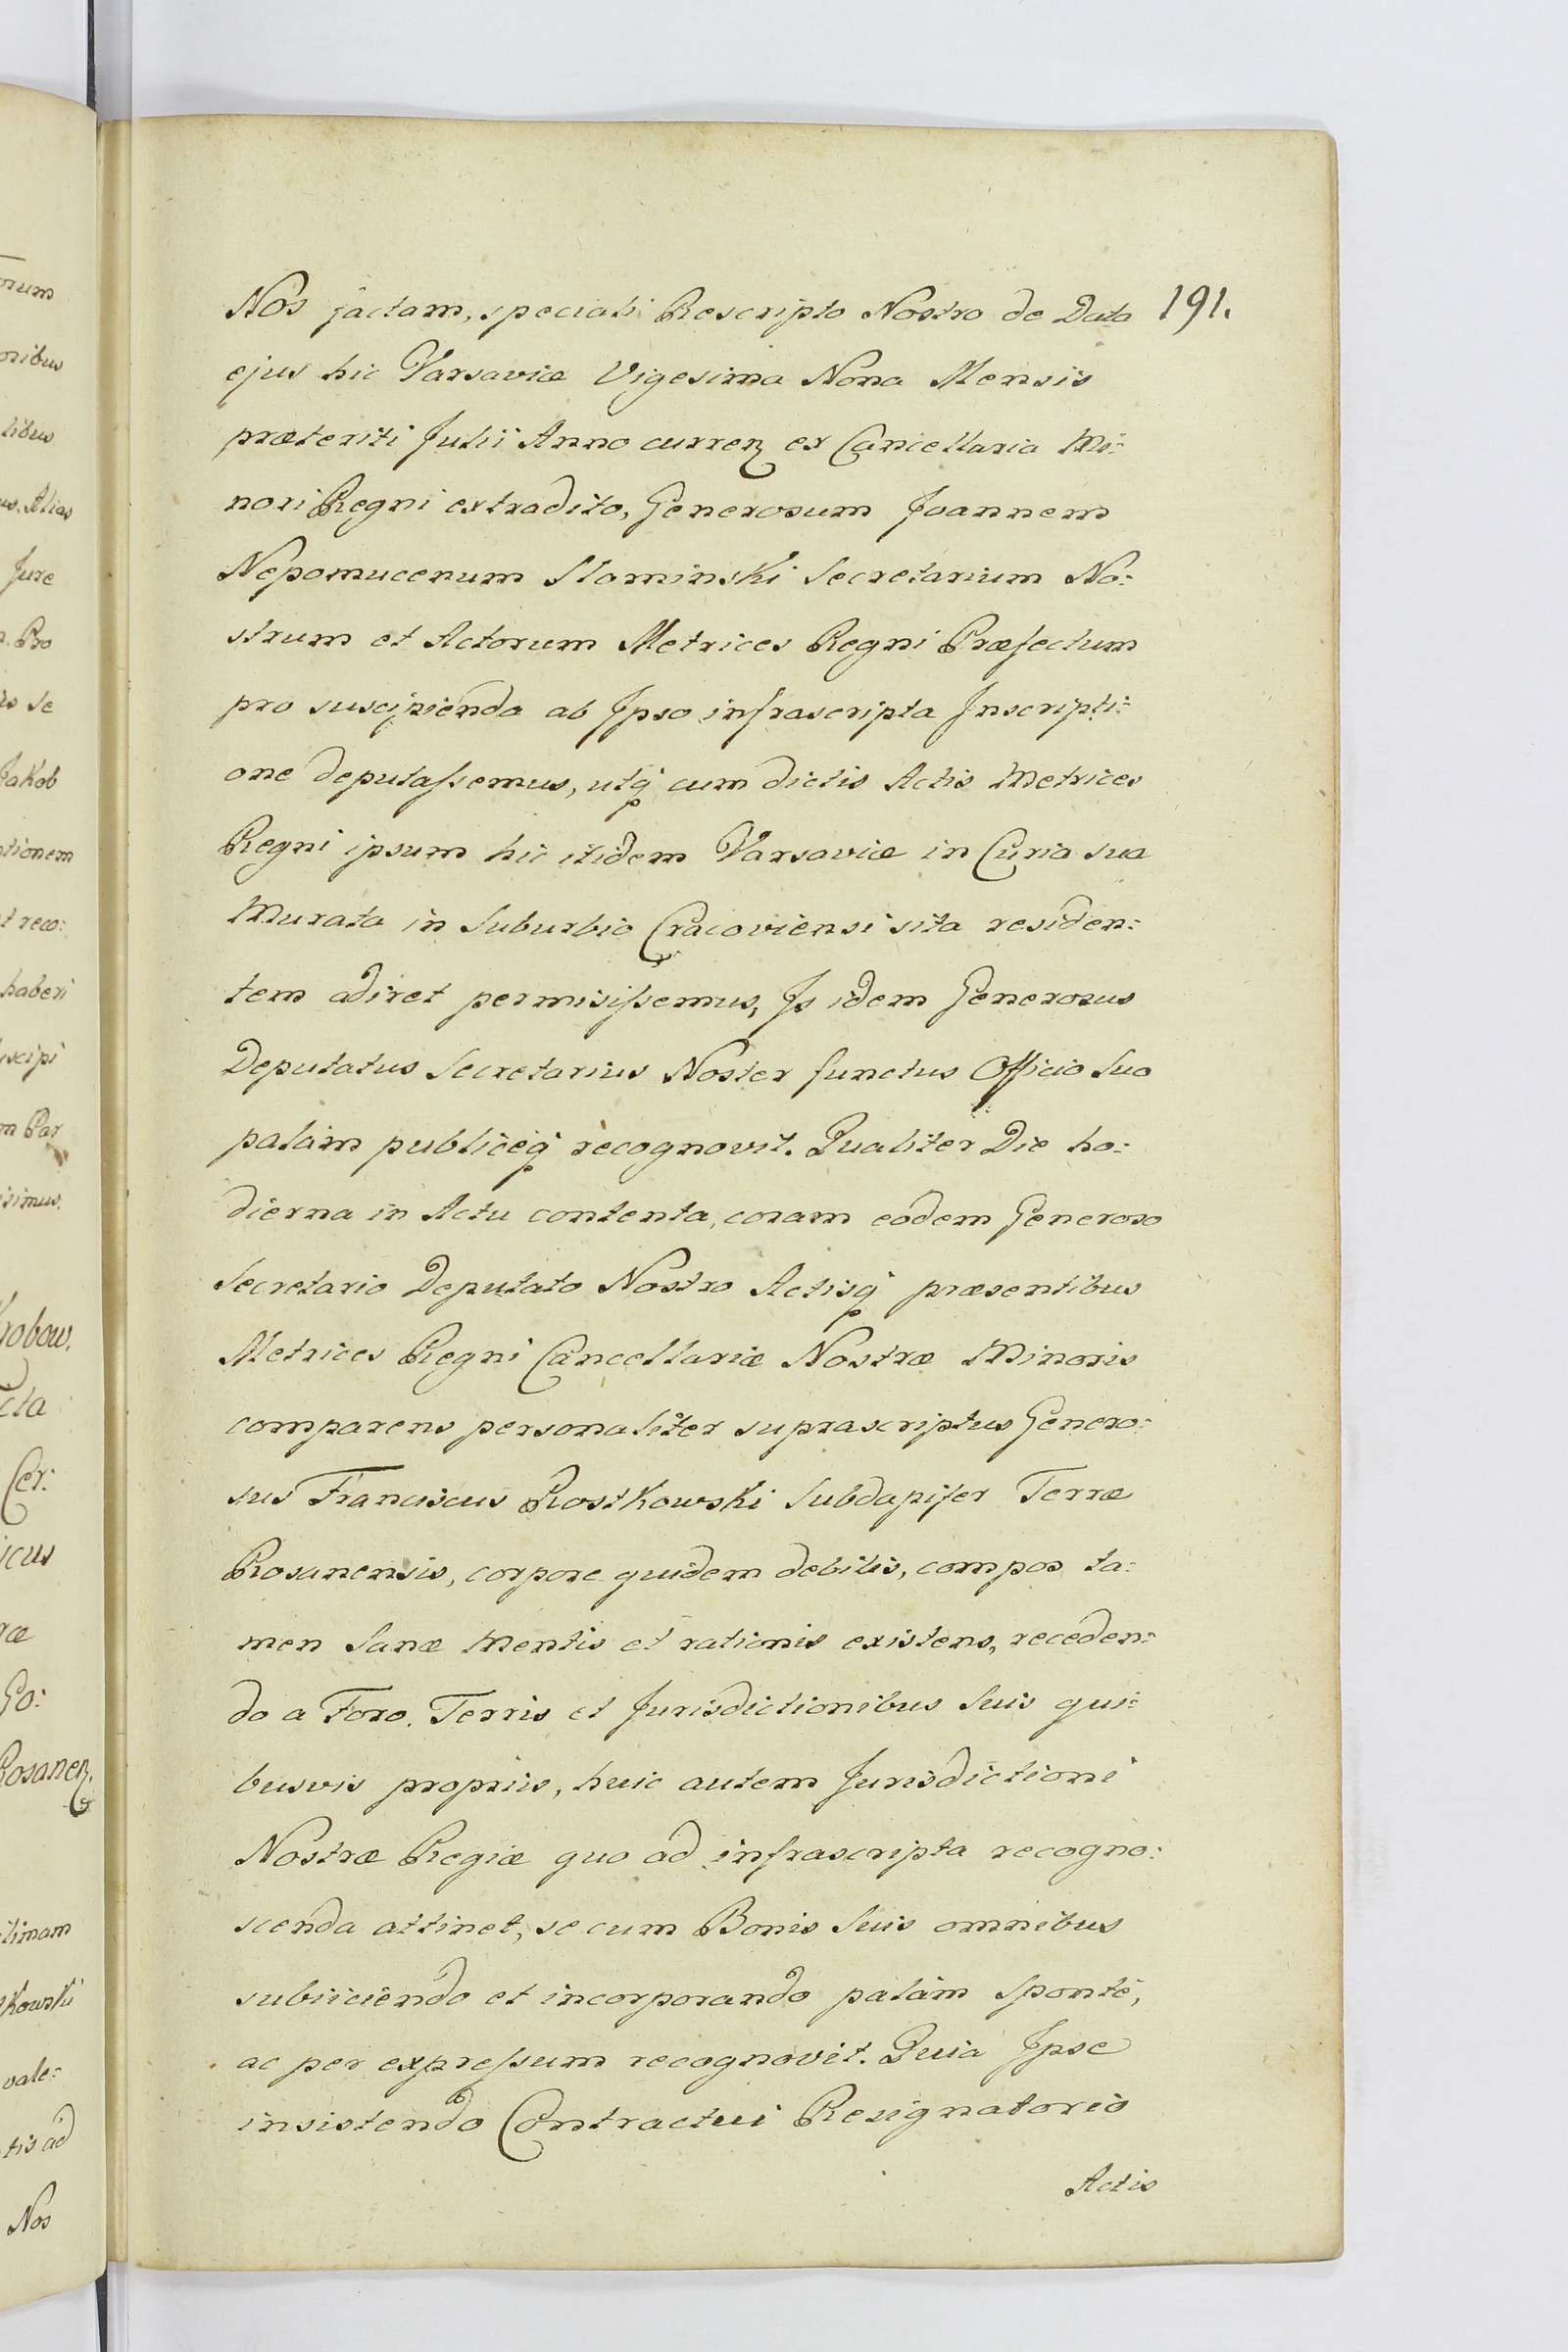 Nos factam, speciali Rescripto Nostro de Data 191.
ejus hic Varsaviæ Vigesima Nona Mensis
præteriti Julii Anno curren ex Cancellaria Mi:
nori Regni extradito, Generosum Joannem
Nepomucenum Słominski Secretarium No:
strum et Actorum Metrices Regni Præfectum
pro suscipienda ab Ipso infrascripta Inscripti:
one deputaſsemus, utq cum dictis Actis Metrices
Regni ipsum hic itidem Varsaviæ in Curia sua
Murata in Suburbio Cracoviensi sita residen:
tem adiret permisiſsemus, Is idem Generosus
Deputatus Secretarius Noster functus Officio Suo
palàm publiceq recognovit. Qualiter Die ho:
dierna in Actu contenta, coram eodem Generoso
Secretario Deputato Nostro Actisq præsentibus
Metrices Regni Cancellariæ Nostræ Minoris
comparens personaliter suprascriptus Genero:
sus Franciscus Rostkowski Subdapifer Terræ
Rosanensis, corpore quidem debilis, compos ta:
men Sanæ Mentis et rationis existens, receden:
do a Foro. Terris et Jurisdictionibus Suis qui:
busvis propriis, huic autem Jurisdictioni
Nostræ Regiæ quo ad infrascripta recogno:
scenda attinet, se cum Bonis Suis omnibus
subiiciendo et incorporando palàm Spontè,
ac per expreſsum recognovit. Quia Ipse
insistendo Contractui Resignatorio
Actis
orum
onibus
libus
us. Alias
Jure
Pro
is se
Jakob
tionem
t reco:
haberi
uscipi
m Par
isimus.
robow.
cta
Cer:
icus
ræ
Go:
Rosanen.
kowski
vale:
tis ad
Nos